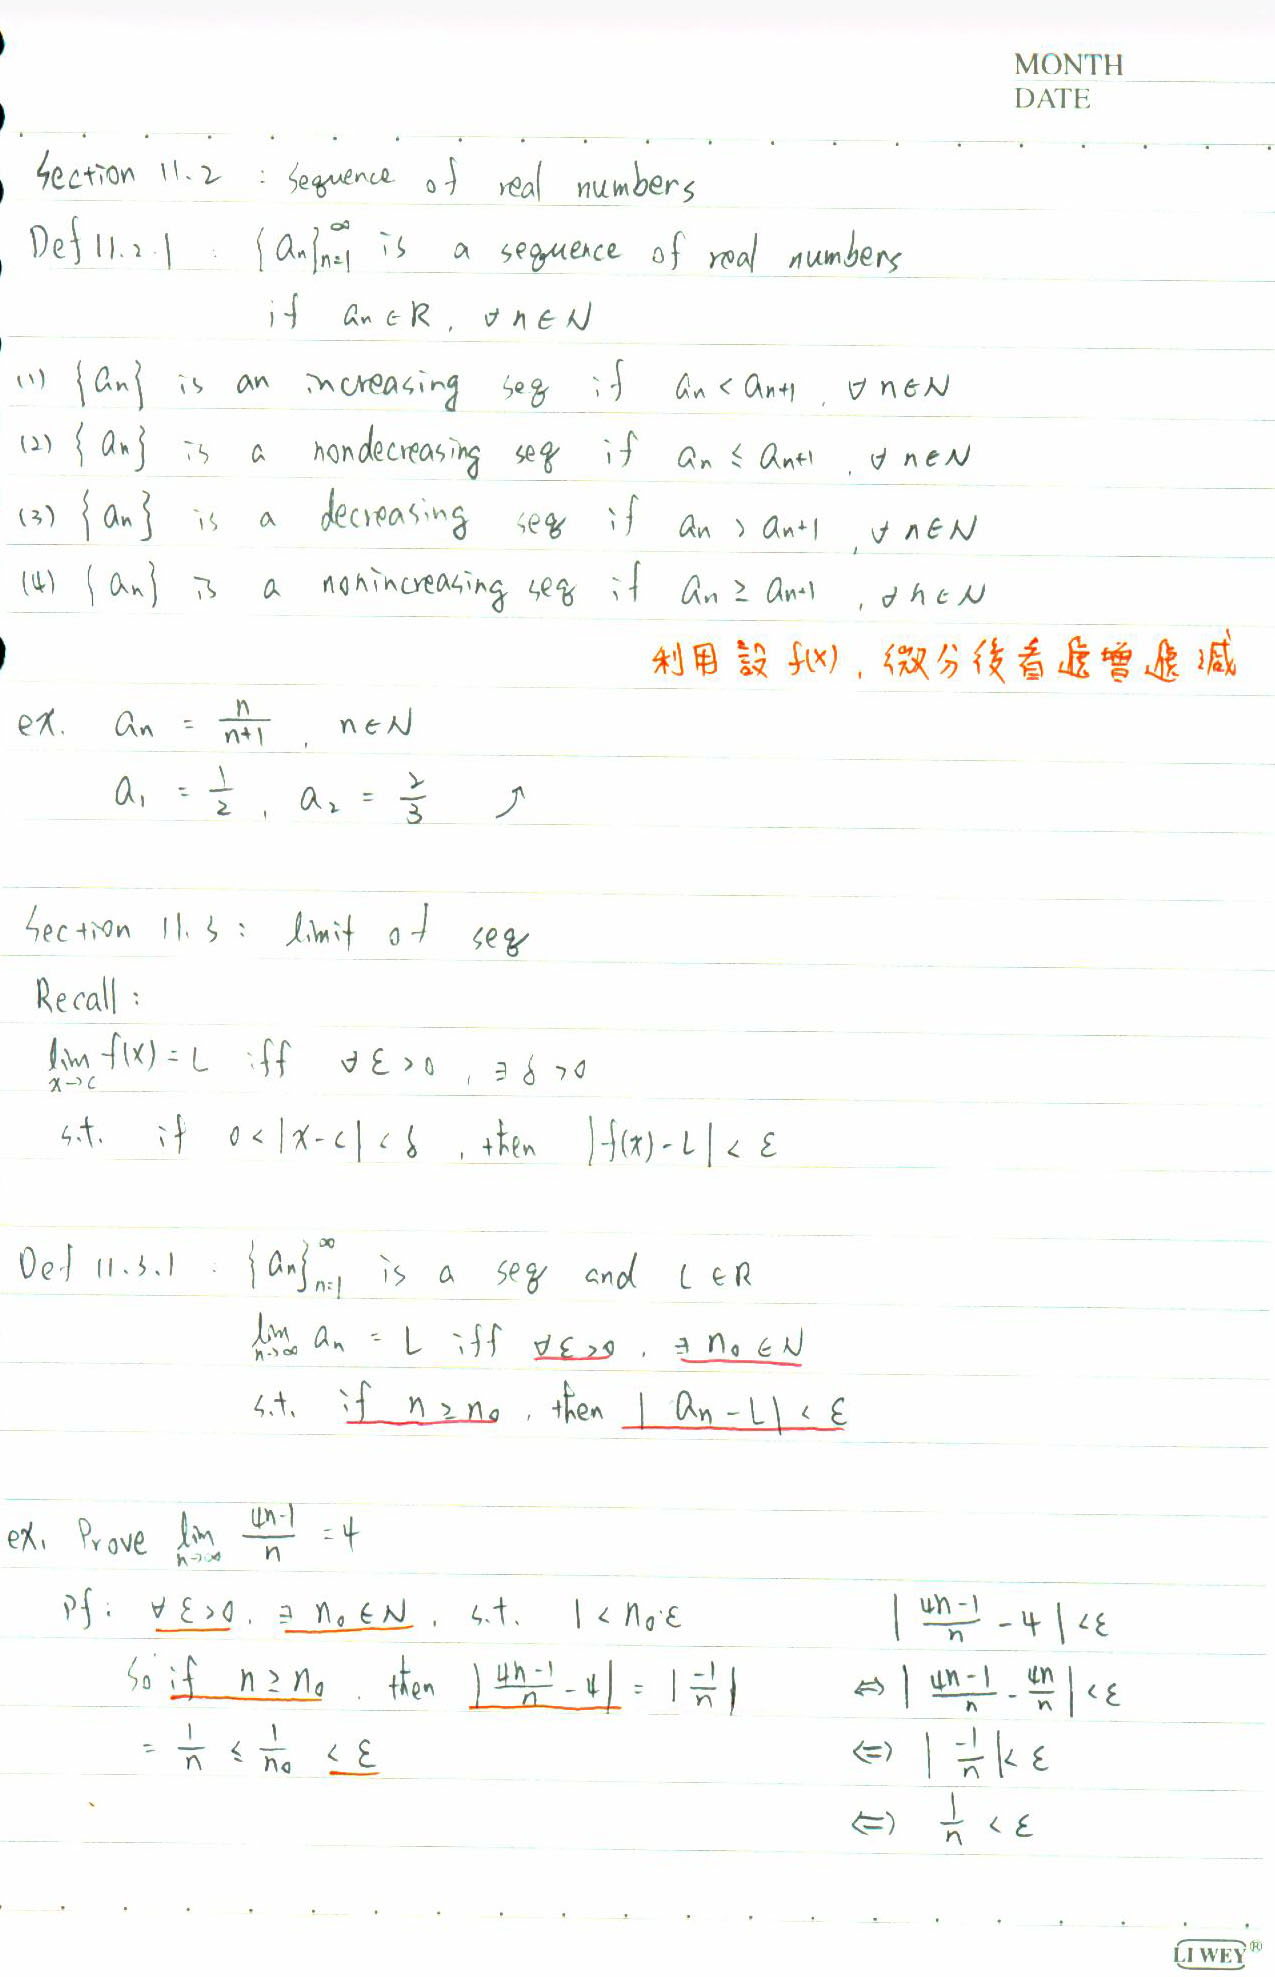 MONTH
DATE
Section 11.2 : sequence of real numbers
Def 11.2.1 : {aₙ}ₙ₌₁^∞ is a sequence of real numbers
if aₙ ∈ R, ∀ n ∈ N
(1) {aₙ} is an increasing seq if aₙ < aₙ₊₁, ∀ n ∈ N
(2) {aₙ} is a nondecreasing seq if aₙ ≤ aₙ₊₁, ∀ n ∈ N
(3) {aₙ} is a decreasing seq if aₙ > aₙ₊₁, ∀ n ∈ N
(4) {aₙ} is a nonincreasing seq if aₙ ≥ aₙ₊₁, ∀ n ∈ N
利用設 f(x), 微分後看遞增遞減
ex. aₙ = n/(n+1), n ∈ N
a₁ = 1/2, a₂ = 2/3 ↗
Section 11.3 : limit of seq
Recall :
lim_{x→c} f(x) = L iff ∀ ε > 0, ∃ δ > 0
s.t. if 0 < |x - c| < δ, then |f(x) - L| < ε
Def 11.3.1 : {aₙ}ₙ₌₁^∞ is a seq and L ∈ R
lim_{n→∞} aₙ = L iff ∀ ε > 0, ∃ n₀ ∈ N
s.t. if n ≥ n₀, then |aₙ - L| < ε
ex. Prove lim_{n→∞} (4n-1)/n = 4
pf : ∀ ε > 0, ∃ n₀ ∈ N, s.t. 1 < n₀·ε
So if n ≥ n₀, then |(4n-1)/n - 4| = |-1/n|
= 1/n ≤ 1/n₀ < ε
|(4n-1)/n - 4| < ε
⇔ |(4n-1)/n - 4n/n| < ε
⇔ |-1/n| < ε
⇔ 1/n < ε
LI WEY ®